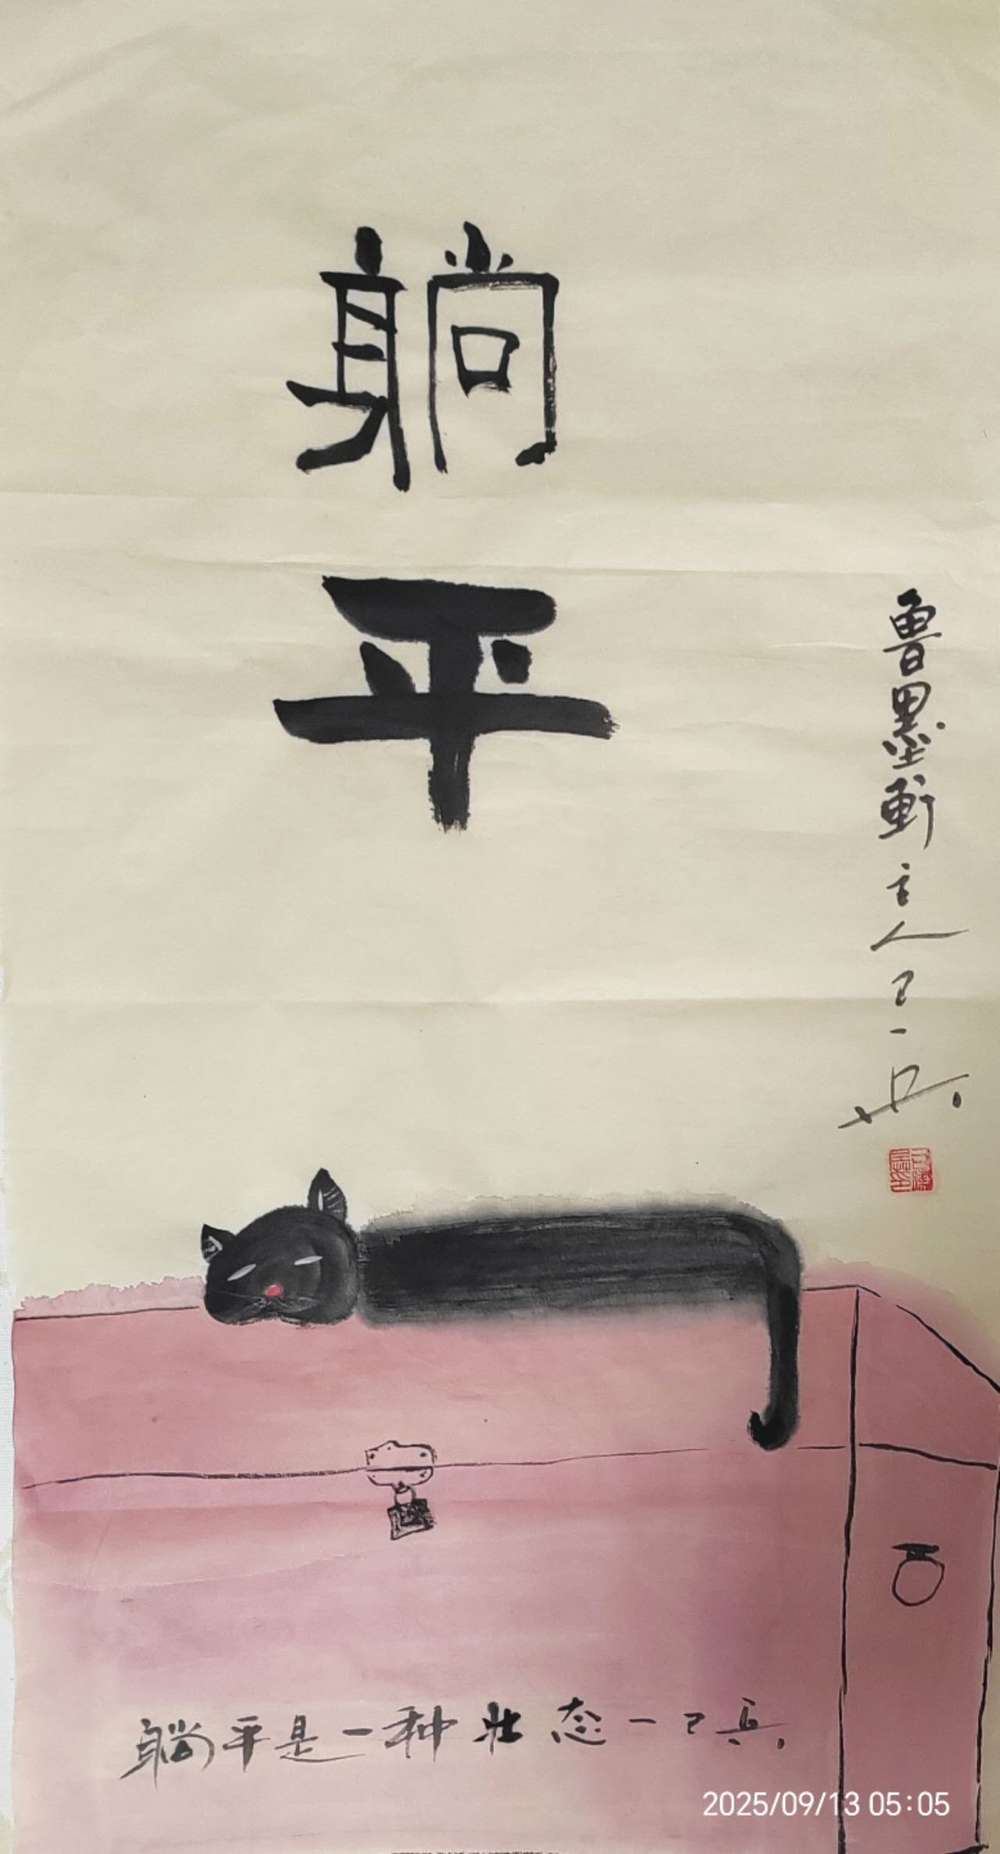 躺
平
鲁墨轩主人
躺平是一种状态一
2025/09/13 05:05